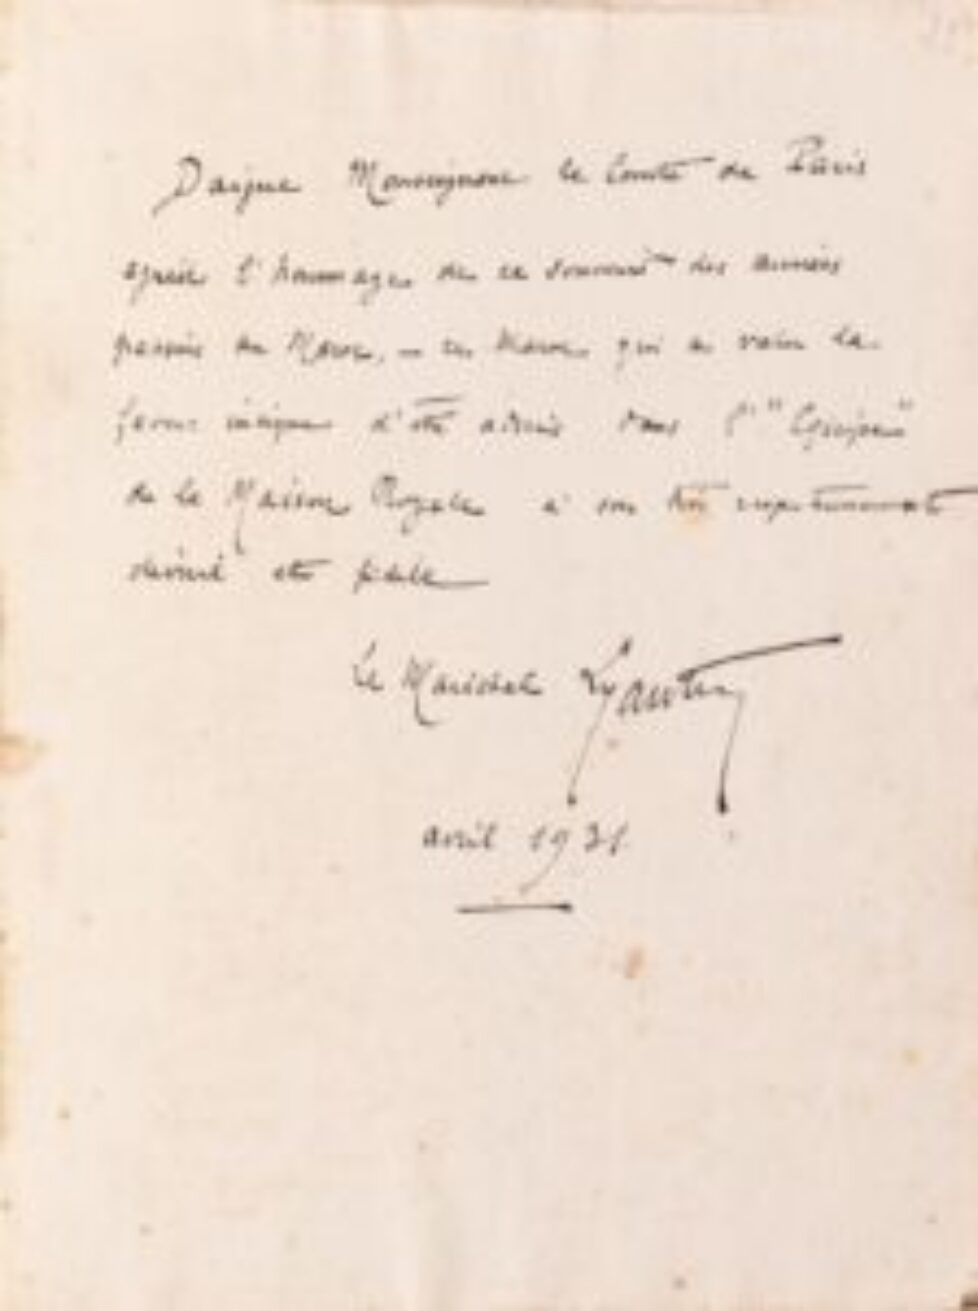 Daigne Monseigneur le Comte de Paris
agréer l'hommage de ce souvenir des années
passées au Maroc, — ce Maroc qui a valu la
faveur insigne d'être admis dans l'"Equipe"
de la Maison Royale à son très respectueusement
dévoué et fidèle
Le Maréchal Lyautey
avril 1931